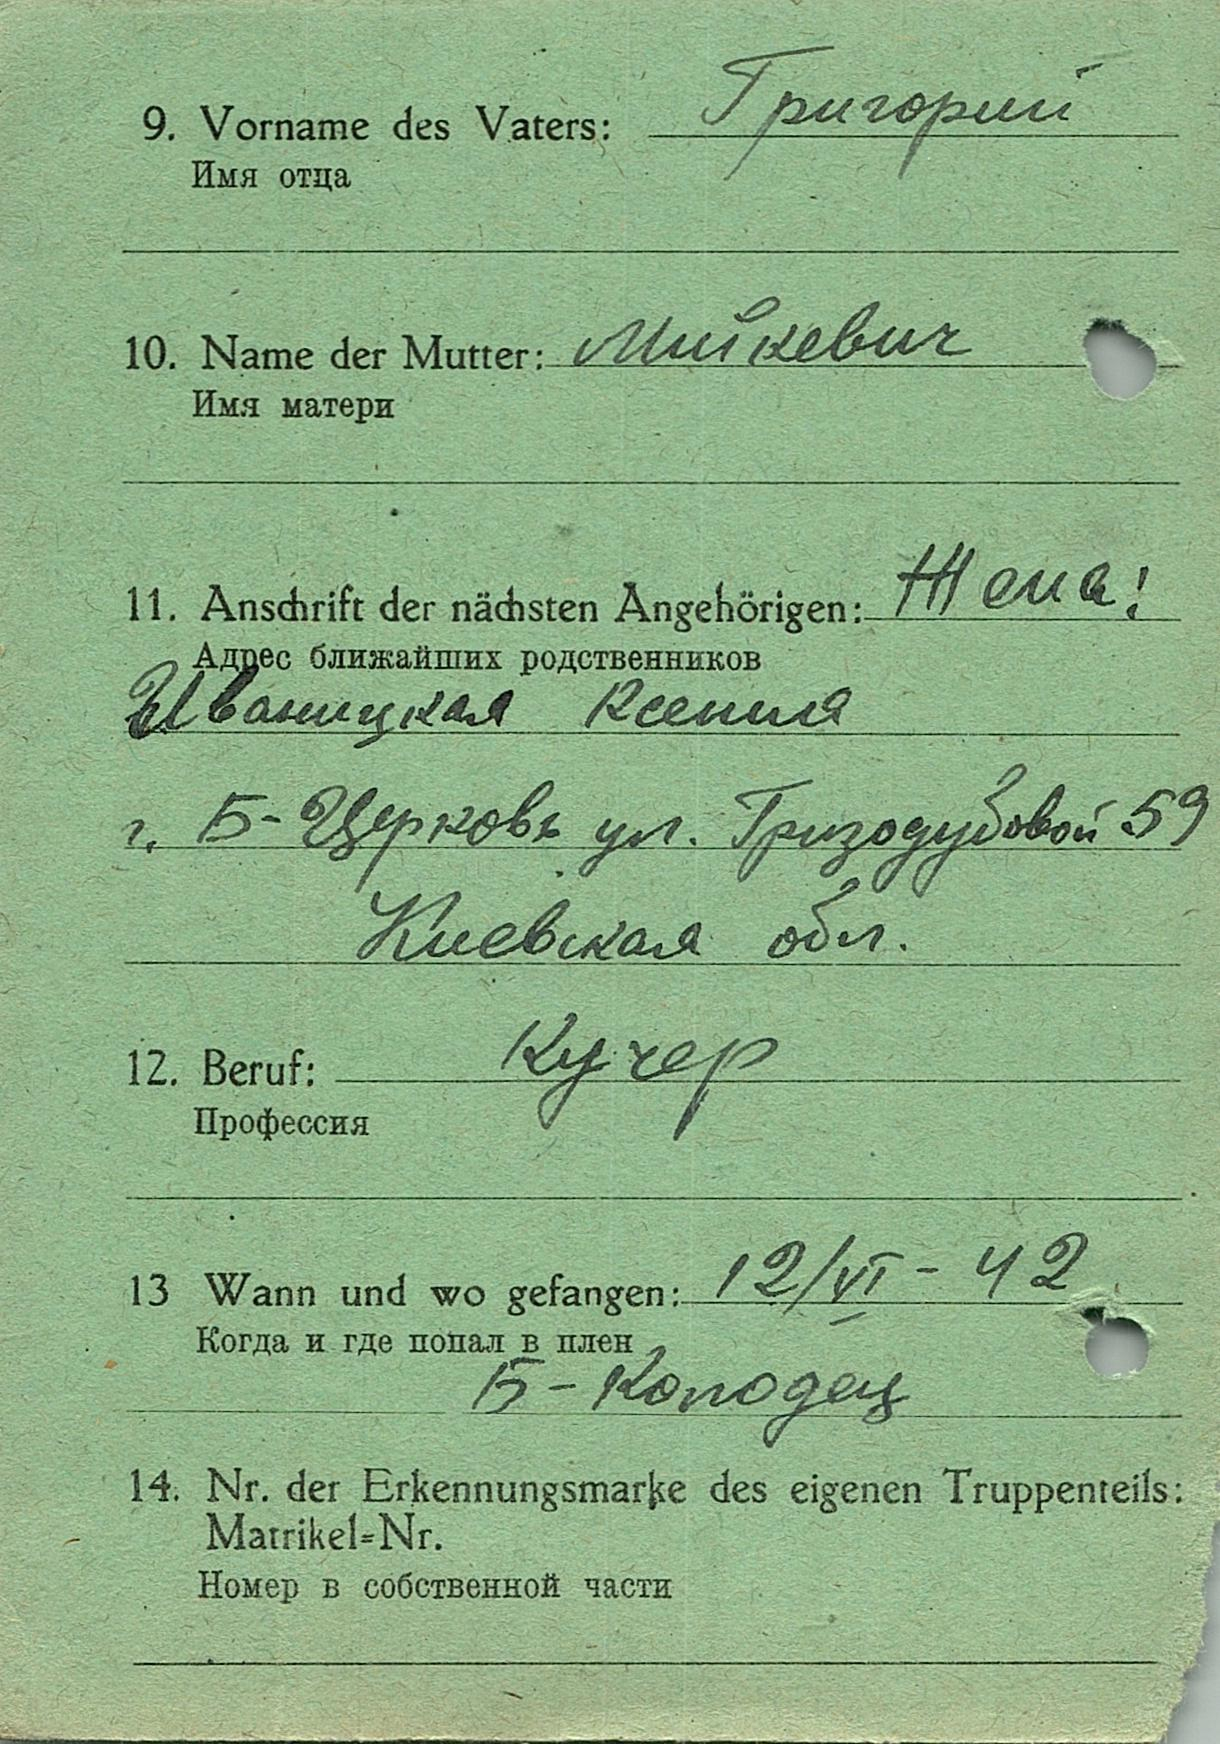 9. Vorname des Vaters: Григорий
Имя отца
10. Name der Mutter: Мийкевич
Имя матери
11. Anschrift der nächsten Angehörigen: Жена!
Адрес ближайших родственников
Иваницкая Ксения
г. Б-Церковь ул. Гризодубовой 59
Киевская обл.
12. Beruf: Кучер
Профессия
13 Wann und wo gefangen: 12/VI - 42
Когда и где попал в плен
Б-Колодец
14. Nr. der Erkennungsmarke des eigenen Truppenteils:
Matrikel=Nr.
Номер в собственной части